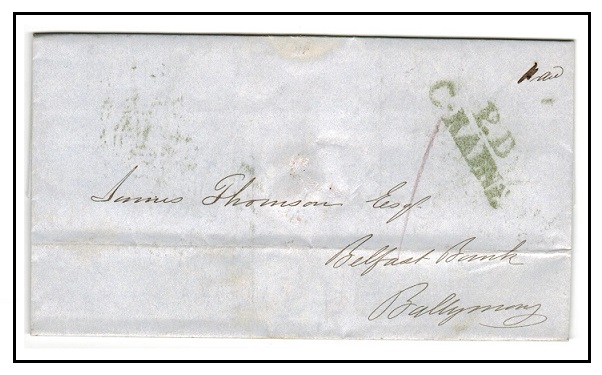 Paid
P.D
James Thomson Esqr
Belfast Bank
Ballymony